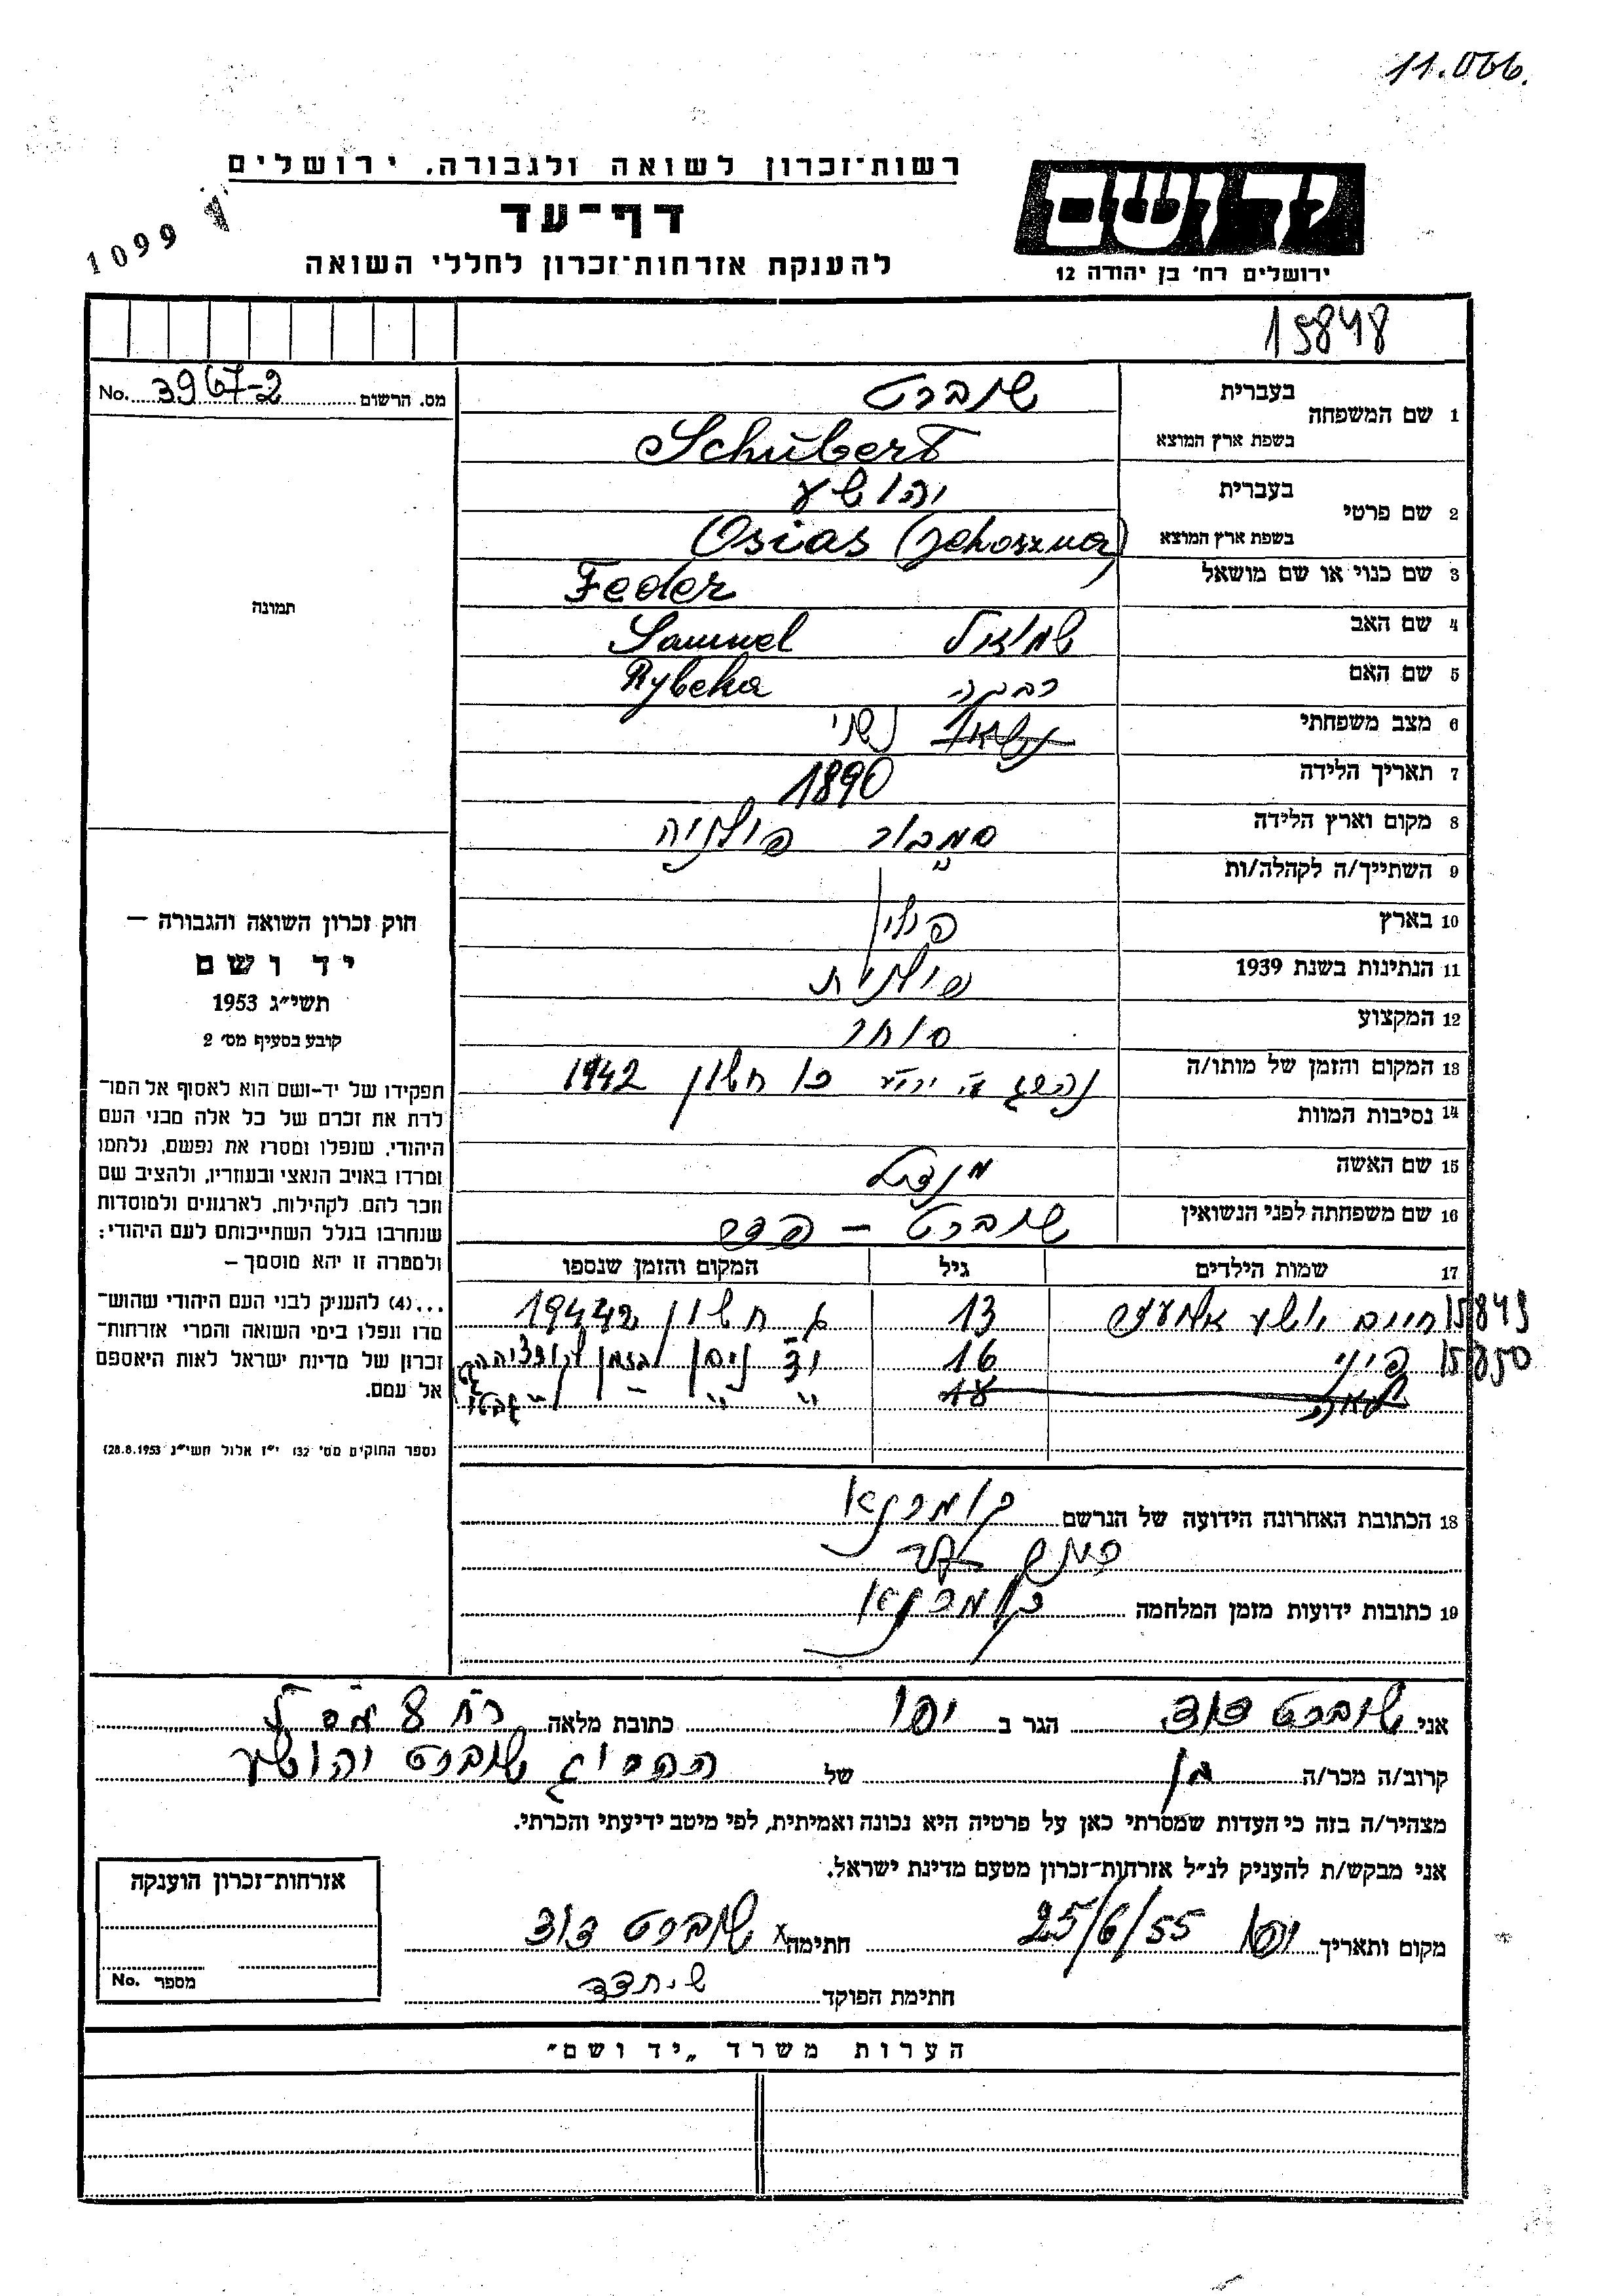 11.066.
רשות־זכרון לשואה ולגבורה, ירושלים
דף־עד
להענקת אזרחות־זכרון לחללי השואה
יד ושם
ירושלים רח׳ בן יהודה 12
1099
15848
מס. הרשום 3967-2 No.
1 שם המשפחה
בעברית שוברט
בשפת ארץ המוצא Schubert
2 שם פרטי
בעברית יהושע
בשפת ארץ המוצא Osias (Jehoszua)
3 שם כנוי או שם מושאל Feder
4 שם האב שמואל Samuel
5 שם האם רבקה Rybeka
6 מצב משפחתי נשוי
7 תאריך הלידה 1890
8 מקום וארץ הלידה סמבור פולניה
9 השתייך/ה לקהלה/ות
10 בארץ פולין
11 הנתינות בשנת 1939 פולנית
12 המקצוע סוחר
13 המקום והזמן של מותו/ה נהרג חשון 1942
14 נסיבות המוות
15 שם האשה
16 שם משפחתה לפני הנשואין שוברט – פדר
17 שמות הילדים גיל המקום והזמן שנספו
15849 חיים 13 חשון
15850 16 ניסן
18
18 הכתובת האחרונה הידועה של הנרשם קומרנא
19 כתובות ידועות מזמן המלחמה קומרנא
תמונה
חוק זכרון השואה והגבורה —
יד ושם
תשי״ג 1953
קובע בסעיף מס׳ 2
תפקידו של יד-ושם הוא לאסוף אל המו־
לדת את זכרם של כל אלה מבני העם
היהודי, שנפלו ומסרו את נפשם, נלחמו
ומרדו באויב הנאצי ובעוזריו, ולהציב שם
וזכר להם, לקהילות, לארגונים ולמוסדות
שנחרבו בגלל השתייכותם לעם היהודי;
ולמטרה זו יהא מוסמך —
...(4) להעניק לבני העם היהודי שהוש־
מדו ונפלו בימי השואה והמרי אזרחות־
זכרון של מדינת ישראל לאות היאספם
אל עמם.
(ספר החוקים מס׳ 132 י״ז אלול תשי״ג 28.8.1953)
אני שוברט דוד הגר ב יפו כתובת מלאה רח
קרוב/ה מכר/ה בן של ההרוג שוברט יהושע
מצהיר/ה בזה כי העדות שמסרתי כאן על פרטיה היא נכונה ואמיתית, לפי מיטב ידיעתי והכרתי.
אני מבקש/ת להעניק לנ״ל אזרחות־זכרון מטעם מדינת ישראל.
מקום ותאריך יפו 25/6/55 חתימה x שוברט דוד
חתימת הפוקד
אזרחות־זכרון הוענקה
מספר No.
הערות משרד „יד ושם״